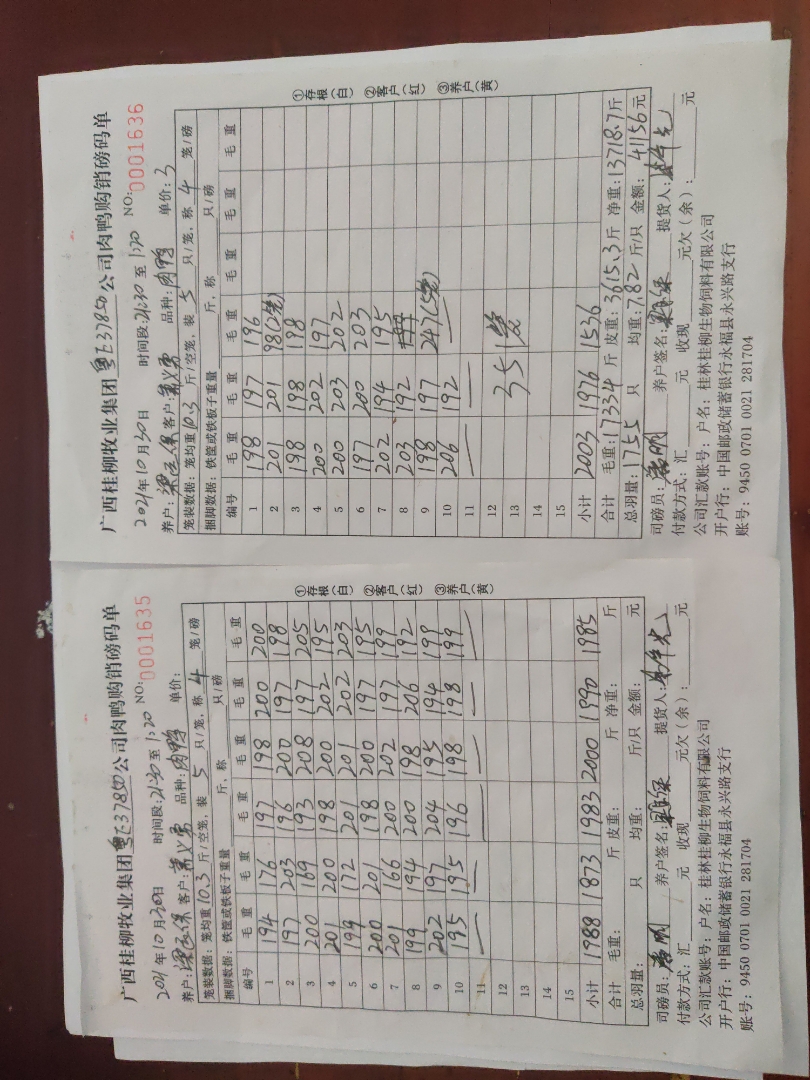 广西桂柳牧业集团粤E37850公司肉鸭购销磅码单
2021年10月30日 时间段:21:30至1:20 NO:0001635
养户: 客户: 品种:肉鸭 单价:
笼装数据:笼均重10.3斤/空笼,装5只/笼,称4笼/磅
捆脚数据:铁筐或铁板子重量 斤,称 只/磅
编号 毛重 毛重 毛重 毛重 毛重 毛重
1 194 176 197 198 200 200
2 197 203 196 200 197 198
3 200 169 193 208 197 205
4 201 200 198 200 202 195
5 199 172 201 201 202 203
6 200 201 198 200 197 195
7 201 166 200 202 197 199
8 199 194 200 198 206 192
9 202 197 204 195 194 199
10 195 195 196 198 198 199
11
12
13
14
15
小计 1988 1873 1983 2000 1990 1985
合计 毛重: 斤 皮重: 斤 净重: 斤
总羽量: 只 均重: 斤/只 金额: 元
司磅员: 养户签名: 提货人:
付款方式:汇 元 收现 元欠(余): 元
公司汇款账号:户名:桂林桂柳生物饲料有限公司
开户行:中国邮政储蓄银行永福县永兴路支行
账号:9450 0701 0021 281704
①存根(白) ②客户(红) ③养户(黄)
广西桂柳牧业集团粤E37850公司肉鸭购销磅码单
2021年10月30日 时间段:21:30至1:20 NO:0001636
养户: 客户: 品种:肉鸭 单价:3
笼装数据:笼均重10.3斤/空笼,装5只/笼,称4笼/磅
捆脚数据:铁筐或铁板子重量 斤,称 只/磅
编号 毛重 毛重 毛重 毛重 毛重 毛重
1 198 197 196
2 201 201 98(2笼)
3 198 198 198
4 200 202 197
5 200 203 202
6 197 200 203
7 202 194 195
8 203 192
9 198 197 247(5笼)
10 206 192
11
12
13 35 1笼
14
15
小计 2003 1976 1536
合计 毛重:17334斤 皮重:3615.3斤 净重:13718.7斤
总羽量:1755只 均重:7.82斤/只 金额:41156元
司磅员: 养户签名: 提货人:
付款方式:汇 元 收现 元欠(余): 元
公司汇款账号:户名:桂林桂柳生物饲料有限公司
开户行:中国邮政储蓄银行永福县永兴路支行
账号:9450 0701 0021 281704
①存根(白) ②客户(红) ③养户(黄)